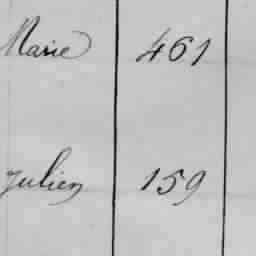 Marie 461
Julien 159